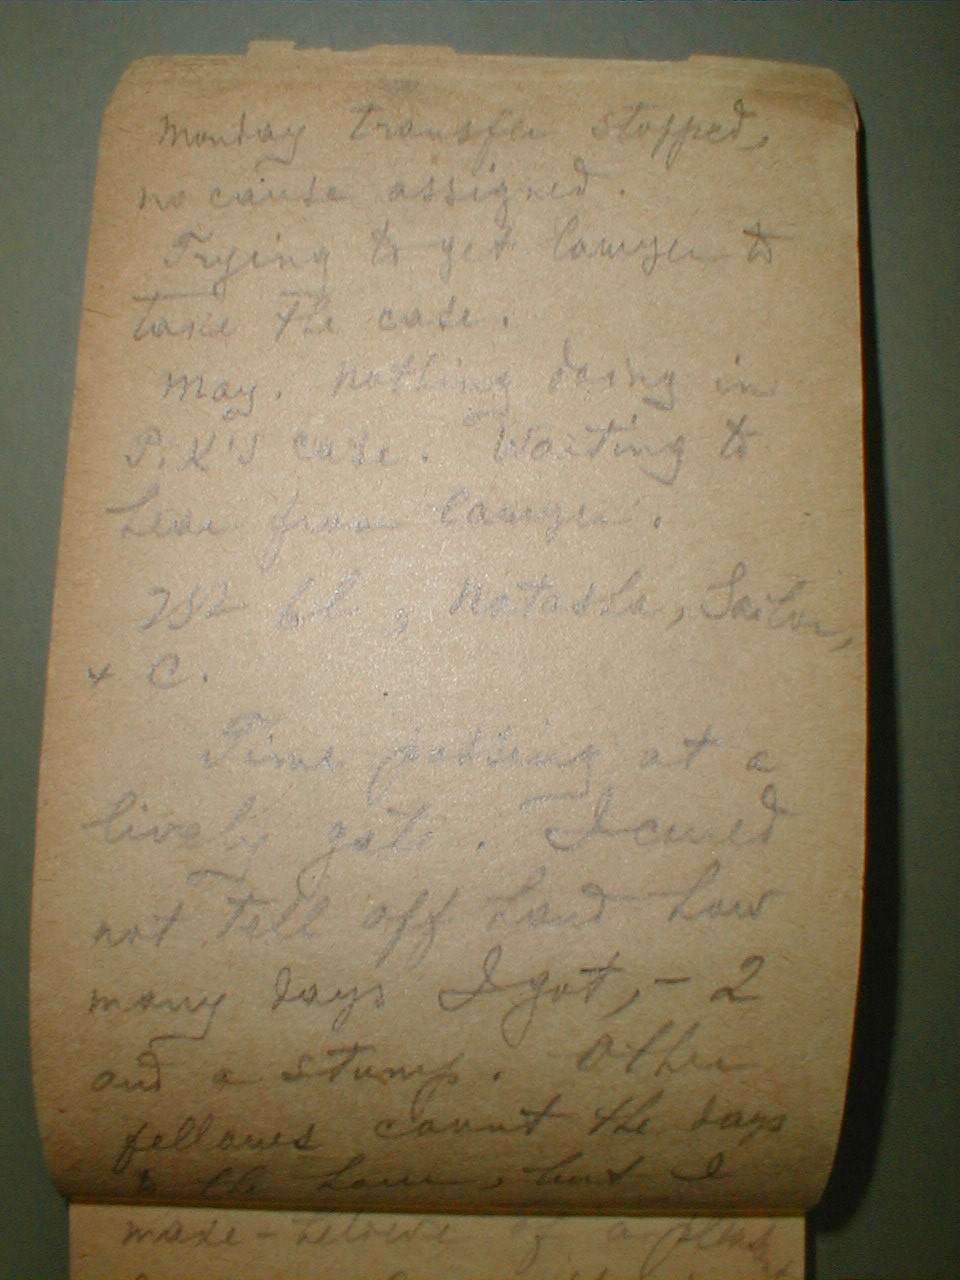 Monday transfer stopped,
no cause assigned.
Trying to get lawyer to
take the case.
May. Nothing doing in
P.K's case. Waiting to
hear from lawyer.
282 bl, Natasha, Sailor,
+ C.
Time passing at a
lively gate. I could
not tell off hand how
many days I got, - 2
and a stump. Other
fellows count the days
& the hour, but I
make-believe of a